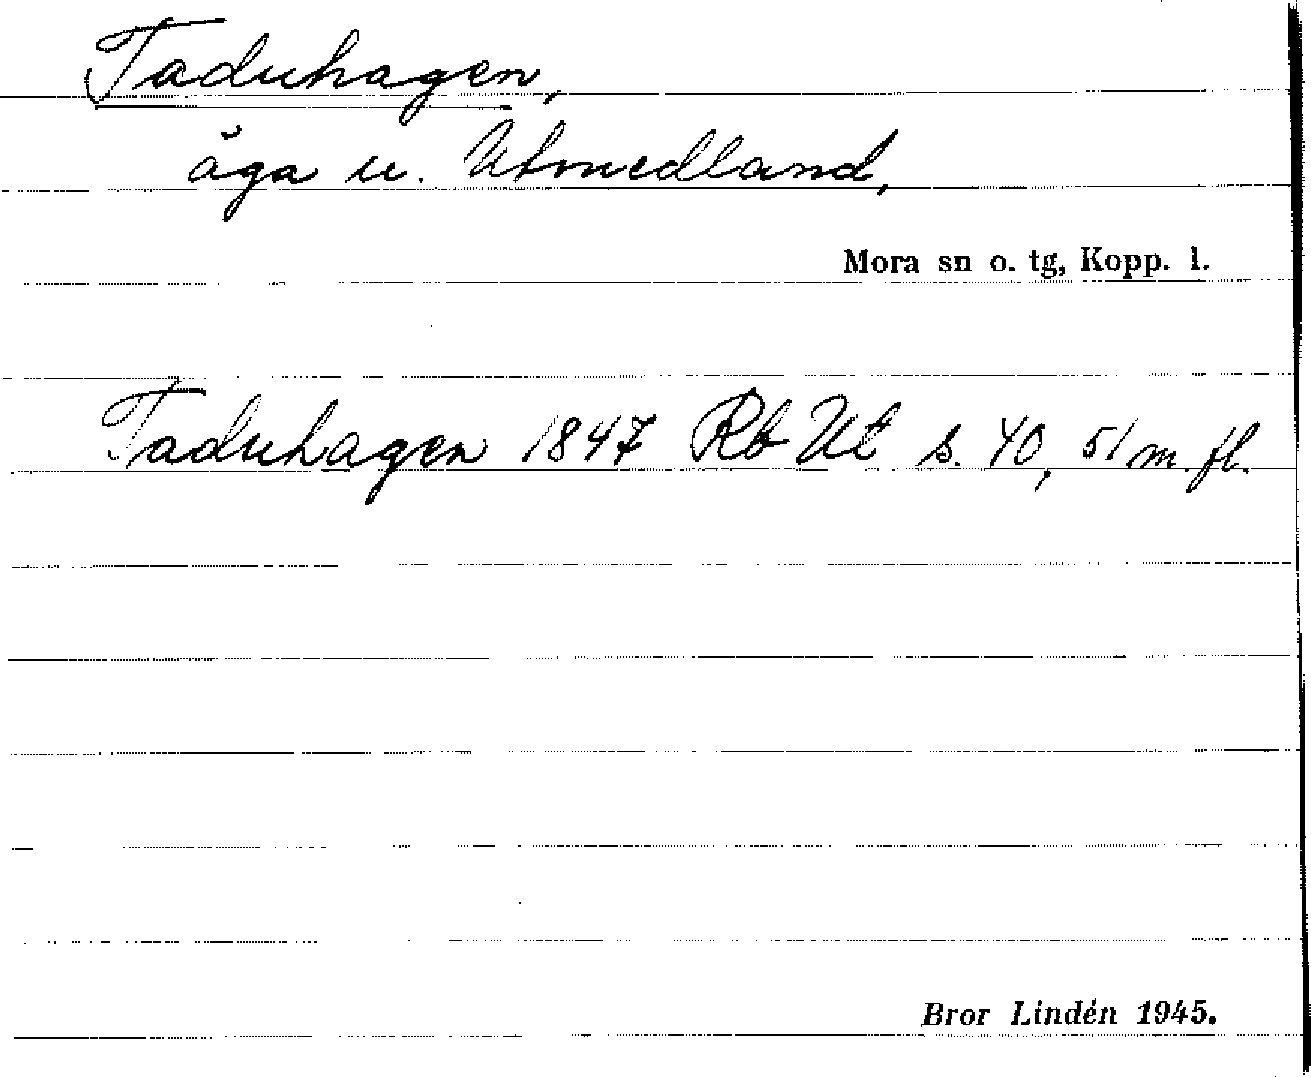 Taduhagen,
äga u. Utmedland,
Mora sn o. tg, Kopp. l.
Taduhagen 1847 Rb Ut s. 40, 51 m. fl.
Bror Lindén 1945.